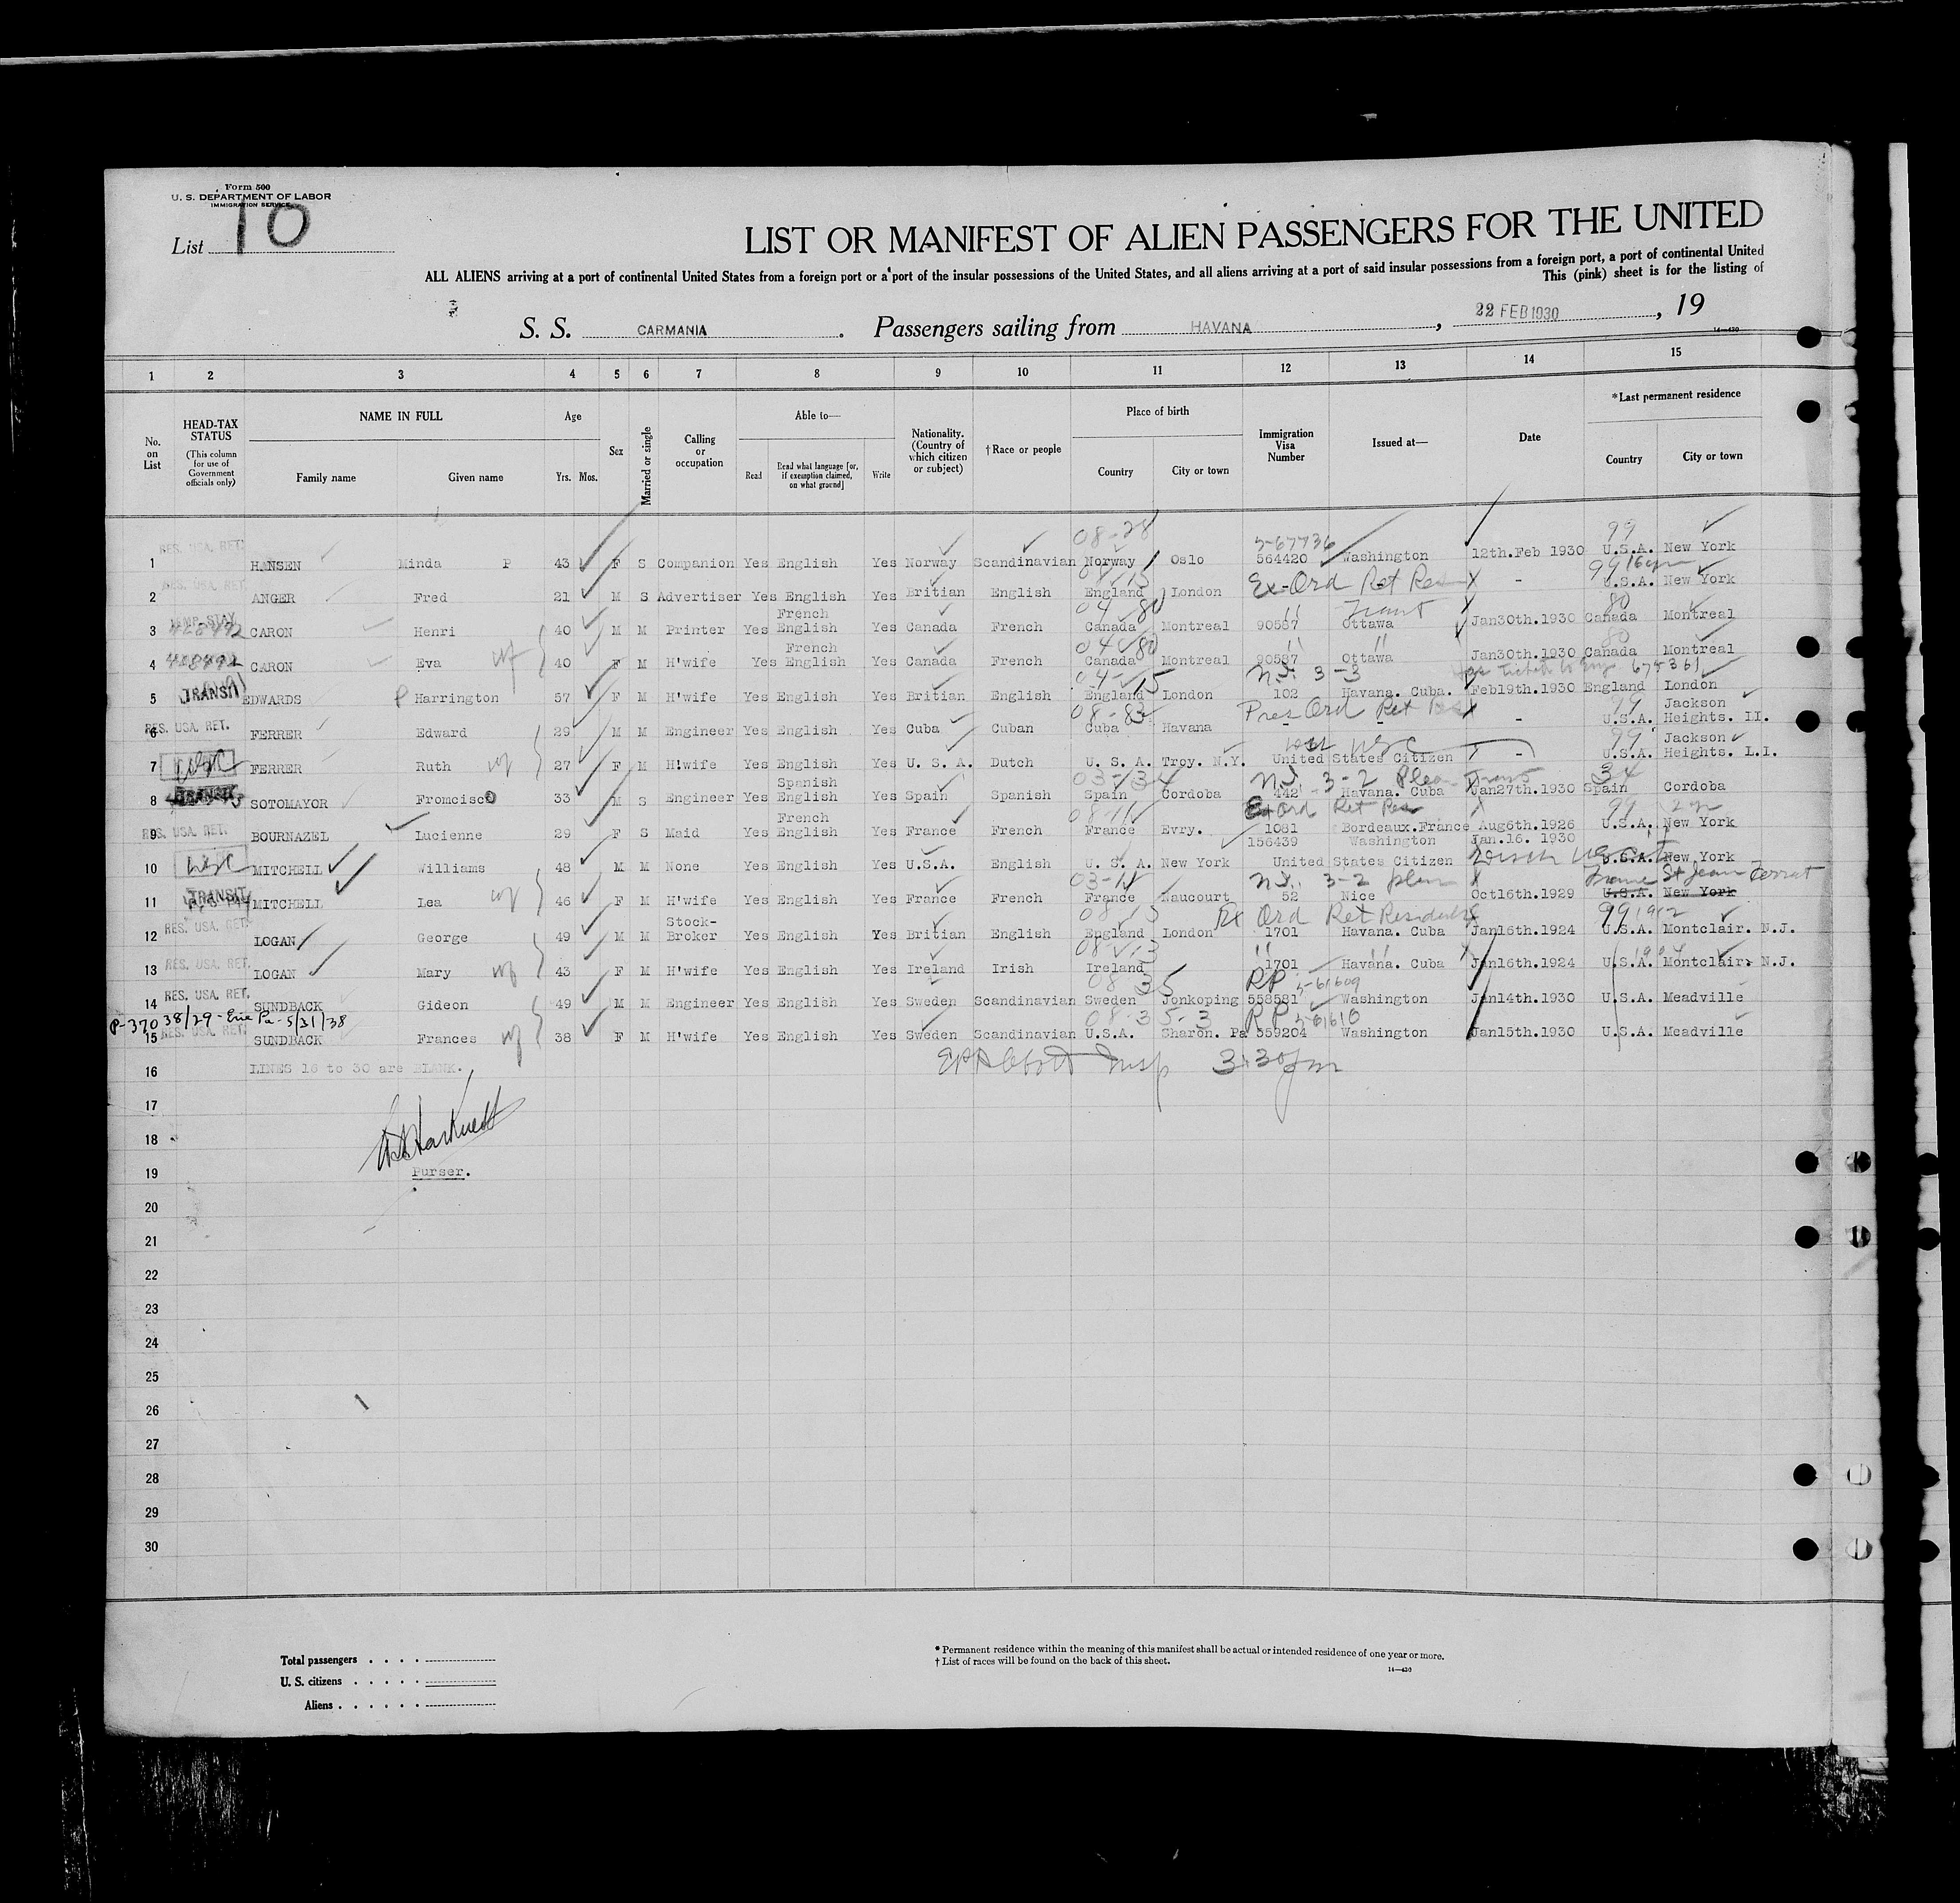 Form 500
U. S. DEPARTMENT OF LABOR
IMMIGRATION SERVICE
List 10
LIST OR MANIFEST OF ALIEN PASSENGERS FOR THE UNITED
ALL ALIENS arriving at a port of continental United States from a foreign port or a port of the insular possessions of the United States, and all aliens arriving at a port of said insular possessions from a foreign port, a port of continental United
This (pink) sheet is for the listing of
S. S. CARMANIA . Passengers sailing from HAVANA , 22 FEB 1930 , 19
14—430
1 2 3 4 5 6 7 8 9 10 11 12 13 14 15
No. on List
HEAD-TAX STATUS (This column for use of Government officials only)
NAME IN FULL
Family name Given name
Age
Yrs. Mos.
Sex
Married or single
Calling or occupation
Able to—
Read Read what language [or, if exemption claimed, on what ground] Write
Nationality. (Country of which citizen or subject)
†Race or people
Place of birth
Country City or town
Immigration Visa Number
Issued at—
Date
*Last permanent residence
Country City or town
08-28 5-67736 99
1 RES. USA. RET. HANSEN Minda P 43 F S Companion Yes English Yes Norway Scandinavian Norway Oslo 564420 Washington 12th.Feb 1930 U.S.A. New York
2 RES. USA. RET. ANGER Fred 21 M S Advertiser Yes English Yes Britian English England London Ex-Ord Ret Res - U.S.A. New York
French 04 80 Transit 80
3 TEMP. STAY CARON Henri 40 M M Printer Yes English Yes Canada French Canada Montreal 90587 Ottawa Jan30th.1930 Canada Montreal
French 04 80 80
4 CARON Eva wf 40 F M H'wife Yes English Yes Canada French Canada Montreal 90587 Ottawa Jan30th.1930 Canada Montreal
04-15 3-3 675361
5 TRANSIT EDWARDS P Harrington 57 F M H'wife Yes English Yes Britian English England London 102 Havana. Cuba. Feb19th.1930 England London
08-83 Pres Ord Ret Res 99 Jackson
6 RES. USA. RET. FERRER Edward 29 M M Engineer Yes English Yes Cuba Cuban Cuba Havana - - - U.S.A. Heights. II.
99 Jackson
7 USC FERRER Ruth wf 27 F M H!wife Yes English Yes U. S. A. Dutch U. S. A. Troy. N.Y. United States Citizen - U.S.A. Heights. L.I.
Spanish 03-34 3-2 34
8 TRANSIT SOTOMAYOR Fromcisco 33 M S Engineer Yes English Yes Spain Spanish Spain Cordoba 442 Havana. Cuba Jan27th.1930 Spain Cordoba
French Ex Ord Ret Res 99
9 RES. USA. RET. BOURNAZEL Lucienne 29 F S Maid Yes English Yes France French France Evry. 1081 Bordeaux.France Aug6th.1926 U.S.A. New York
156439 Washington Jan.16. 1930
10 USC MITCHELL Williams 48 M M None Yes English Yes U.S.A. English U. S. A. New York United States Citizen U.S.A. New York
03-11 3-2 France St Jean Ferrat
11 TRANSIT MITCHELL Lea wf 46 F M H'wife Yes France French France Naucourt 52 Nice Oct16th.1929 U.S.A. New York
Stock- Ex Ord Ret Residents 99 1912
12 RES. USA. RET. LOGAN George 49 M M Broker Yes English Yes Britian English England London 1701 Havana. Cuba Jan16th.1924 U.S.A. Montclair. N.J.
13 RES. USA. RET. LOGAN Mary wf 43 F M H'wife Yes English Yes Ireland Irish Ireland 1701 Havana. Cuba Jan16th.1924 U.S.A. Montclair. N.J.
08 35 RP 5-61609
14 RES. USA. RET. SUNDBACK Gideon 49 M M Engineer Yes English Yes Sweden Scandinavian Sweden Jonkoping 558581 Washington Jan14th.1930 U.S.A. Meadville
P-370 38/29 - Erie Pa - 5/31/38 RP 5-61610
15 RES. USA. RET. SUNDBACK Frances wf 38 F M H'wife Yes English Yes Sweden Scandinavian U.S.A. Sharon. Pa 559204 Washington Jan15th.1930 U.S.A. Meadville
16 LINES 16 to 30 are BLANK. Insp 3:30 pm
17
18
19 Purser.
20
21
22
23
24
25
26
27
28
29
30
Total passengers
U. S. citizens
Aliens
* Permanent residence within the meaning of this manifest shall be actual or intended residence of one year or more.
† List of races will be found on the back of this sheet.
14—430